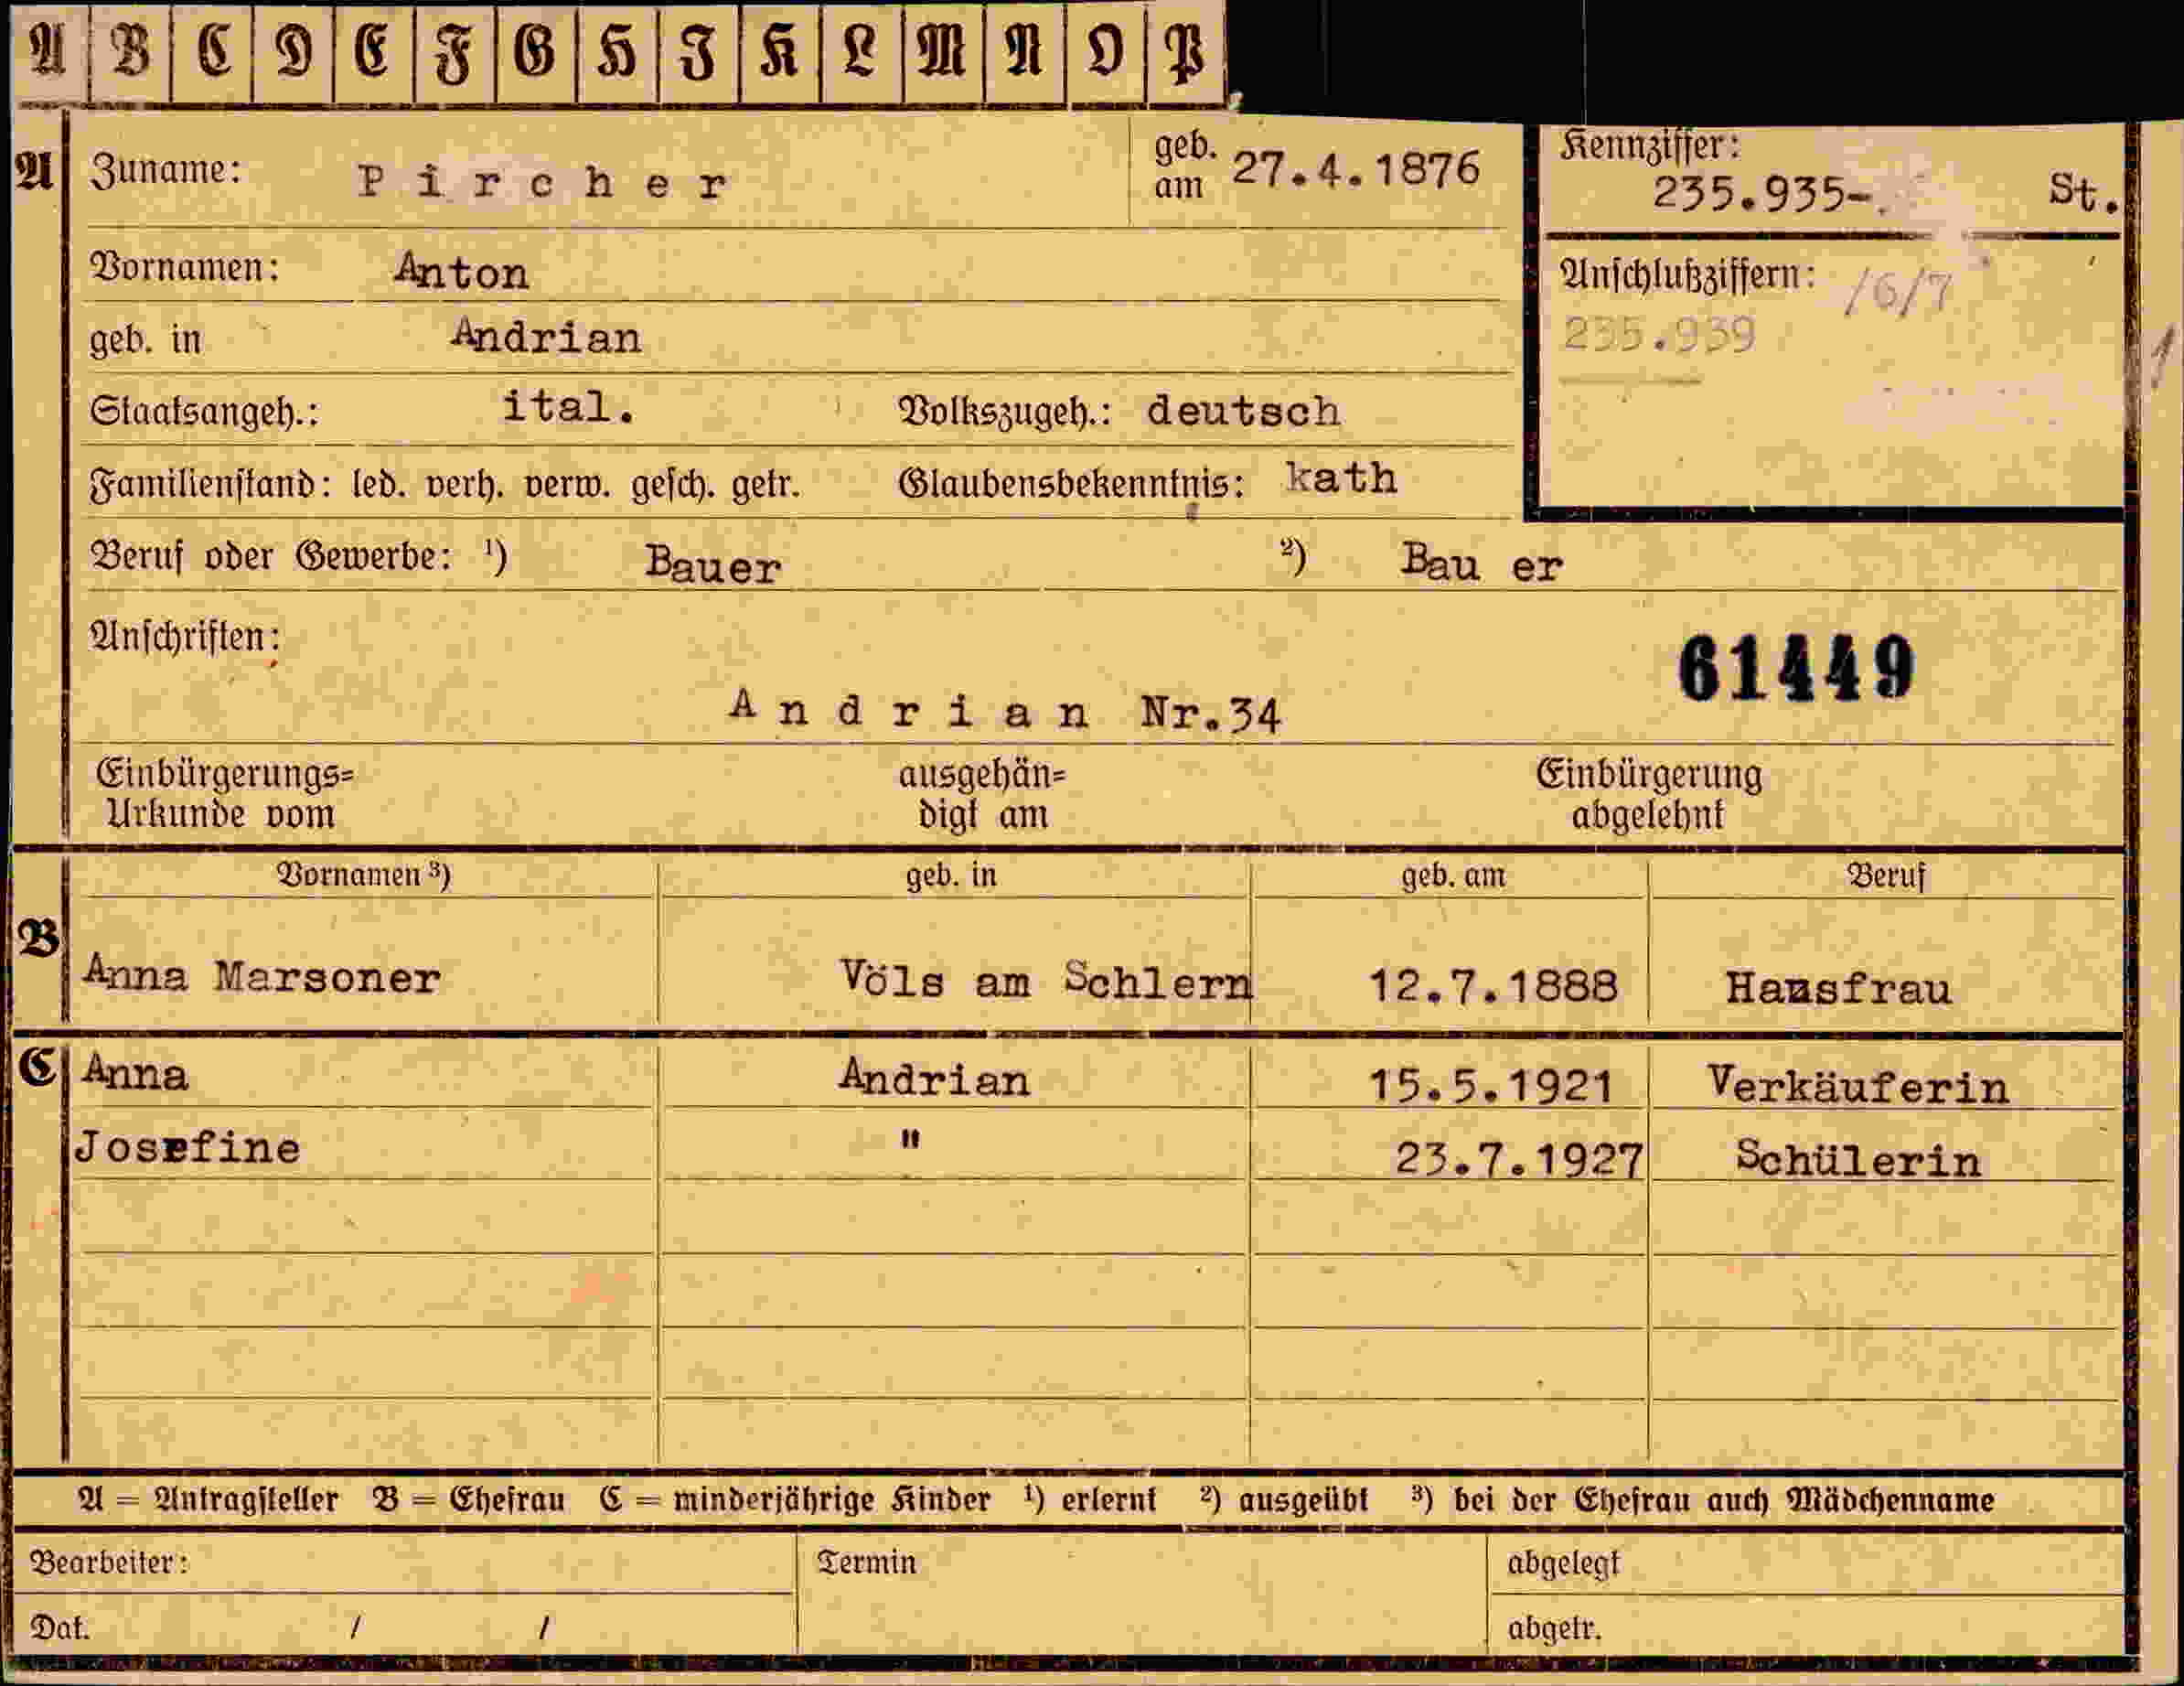 A B C D E F G H I K L M N O P
A Zuname: Pircher geb. am 27.4.1876
Kennziffer: 235.935- St.
Vornamen: Anton
Anschlußziffern: /6/7
235.939
geb. in Andrian
1
Staatsangeh.: ital. Volkszugeh.: deutsch
Familienstand: led. verh. verw. gesch. getr. Glaubensbekenntnis: kath
Beruf oder Gewerbe: ¹) Bauer ²) Bau er
Anschriften:
61449
Andrian Nr.34
Einbürgerungs= ausgehän= Einbürgerung
Urkunde vom digt am abgelehnt
Vornamen ³) geb. in geb. am Beruf
B
Anna Marsoner Völs am Schlern 12.7.1888 Hausfrau
C Anna Andrian 15.5.1921 Verkäuferin
Josefine " 23.7.1927 Schülerin
A = Antragsteller B = Ehefrau C = minderjährige Kinder ¹) erlernt ²) ausgeübt ³) bei der Ehefrau auch Mädchenname
Bearbeiter: Termin abgelegt
Dat. / / abgetr.